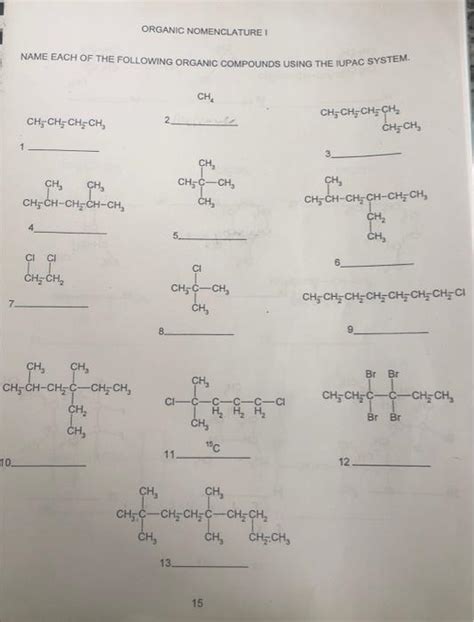 ORGANIC NOMENCLATURE I
NAME EACH OF THE FOLLOWING ORGANIC COMPOUNDS USING THE IUPAC SYSTEM.
CH₃-CH₂-CH₂-CH₃
1
CH₄
2.
CH₃-CH₂-CH₂-CH₂
CH₂-CH₃
3.
CH₃ CH₃
CH₃-CH-CH₂-CH-CH₃
4.
CH₃
CH₃-C-CH₃
CH₃
5.
CH₃
CH₃-CH-CH₂-CH-CH₂-CH₃
CH₂
CH₃
6.
Cl Cl
CH₂-CH₂
7.
Cl
CH₃-C-CH₃
CH₃
8.
CH₃-CH₂-CH₂-CH₂-CH₂-CH₂-CH₂-Cl
9.
CH₃ CH₃
CH₃-CH-CH₂-C-CH₂-CH₃
CH₂
CH₃
10.
CH₃
Cl-C-C-C-C-Cl
H₂ H₂ H₂
CH₃
C
11.
Br Br
CH₃-CH₂-C-C-CH₂-CH₃
Br Br
12
CH₃ CH₃
CH₃-C-CH₂-CH₂-C-CH₂-CH₂
CH₃ CH₃ CH₂-CH₃
13.
15